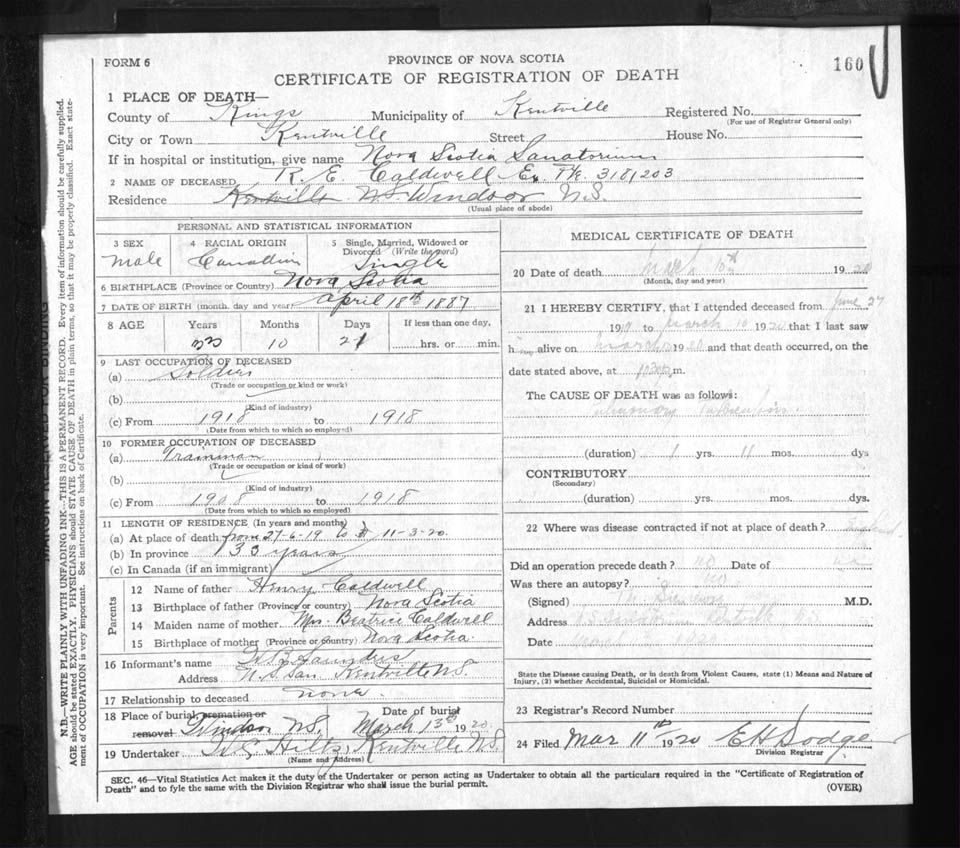 FORM 6
PROVINCE OF NOVA SCOTIA
160
CERTIFICATE OF REGISTRATION OF DEATH
1 PLACE OF DEATH—
County of Kings Municipality of Kentville Registered No.
(For use of Registrar General only)
City or Town Kentville Street House No.
If in hospital or institution, give name Nova Scotia Sanatorium
2 NAME OF DECEASED R. E. Caldwell Ex. Pte. 3181203
Residence Kentville N.S. Windsor N.S.
(Usual place of abode)
PERSONAL AND STATISTICAL INFORMATION
3 SEX 4 RACIAL ORIGIN 5 Single, Married, Widowed or Divorced (Write the word)
male Canadian Single
6 BIRTHPLACE (Province or Country) Nova Scotia
7 DATE OF BIRTH (month, day and year) April 18th 1887
8 AGE Years Months Days If less than one day,
10 21 hrs. or min.
9 LAST OCCUPATION OF DECEASED
(a) Soldier
(Trade or occupation or kind or work)
(b)
(Kind of industry)
(c) From 1918 to 1918
(Date from which to which so employed)
10 FORMER OCCUPATION OF DECEASED
(a) Trainman
(Trade or occupation or kind of work)
(b)
(Kind of industry)
(c) From 1908 to 1918
(Date from which to which so employed)
11 LENGTH OF RESIDENCE (In years and months)
(a) At place of death from 27-6-19 to 11-3-20.
(b) In province 33 years
(c) In Canada (if an immigrant)
Parents
12 Name of father Henry Caldwell
13 Birthplace of father (Province or country) Nova Scotia
14 Maiden name of mother Mrs. Beatrice Caldwell
15 Birthplace of mother (Province or country) Nova Scotia.
16 Informant's name Saunders
Address N. S. San. Kentville N.S.
17 Relationship to deceased none.
18 Place of burial, cremation or removal Windsor N.S. Date of burial March 13th 1920.
19 Undertaker Hiltz, Kentville N.S.
(Name and Address)
MEDICAL CERTIFICATE OF DEATH
20 Date of death March 10th 1920
(Month, day and year)
21 I HEREBY CERTIFY, that I attended deceased from June 27
1919 to March 10 1920 that I last saw
him alive on March 1920 and that death occurred, on the
date stated above, at m.
The CAUSE OF DEATH was as follows:
Pulmonary Tuberculosis.
(duration) 1 yrs. 11 mos. dys
CONTRIBUTORY
(Secondary)
(duration) yrs. mos. dys.
22 Where was disease contracted if not at place of death? England
Did an operation precede death? no Date of
Was there an autopsy? no
(Signed) M.D.
Address N.S. Sanatorium Kentville N.S.
Date March 1920
State the Disease causing Death, or in death from Violent Causes, state (1) Means and Nature of
Injury, (2) whether Accidental, Suicidal or Homicidal.
23 Registrar's Record Number
24 Filed Mar 11th 1920 E H Dodge
Division Registrar
SEC. 46—Vital Statistics Act makes it the duty of the Undertaker or person acting as Undertaker to obtain all the particulars required in the "Certificate of Registration of
Death" and to fyle the same with the Division Registrar who shall issue the burial permit.
(OVER)
MARGIN RESERVED FOR BINDING
N.B.—WRITE PLAINLY WITH UNFADING INK—THIS IS A PERMANENT RECORD. Every item of information should be carefully supplied.
AGE should be stated EXACTLY. PHYSICIANS should STATE CAUSE OF DEATH in plain terms, so that it may be properly classified. Exact state-
ment of OCCUPATION is very important. See instructions on back of Certificate.